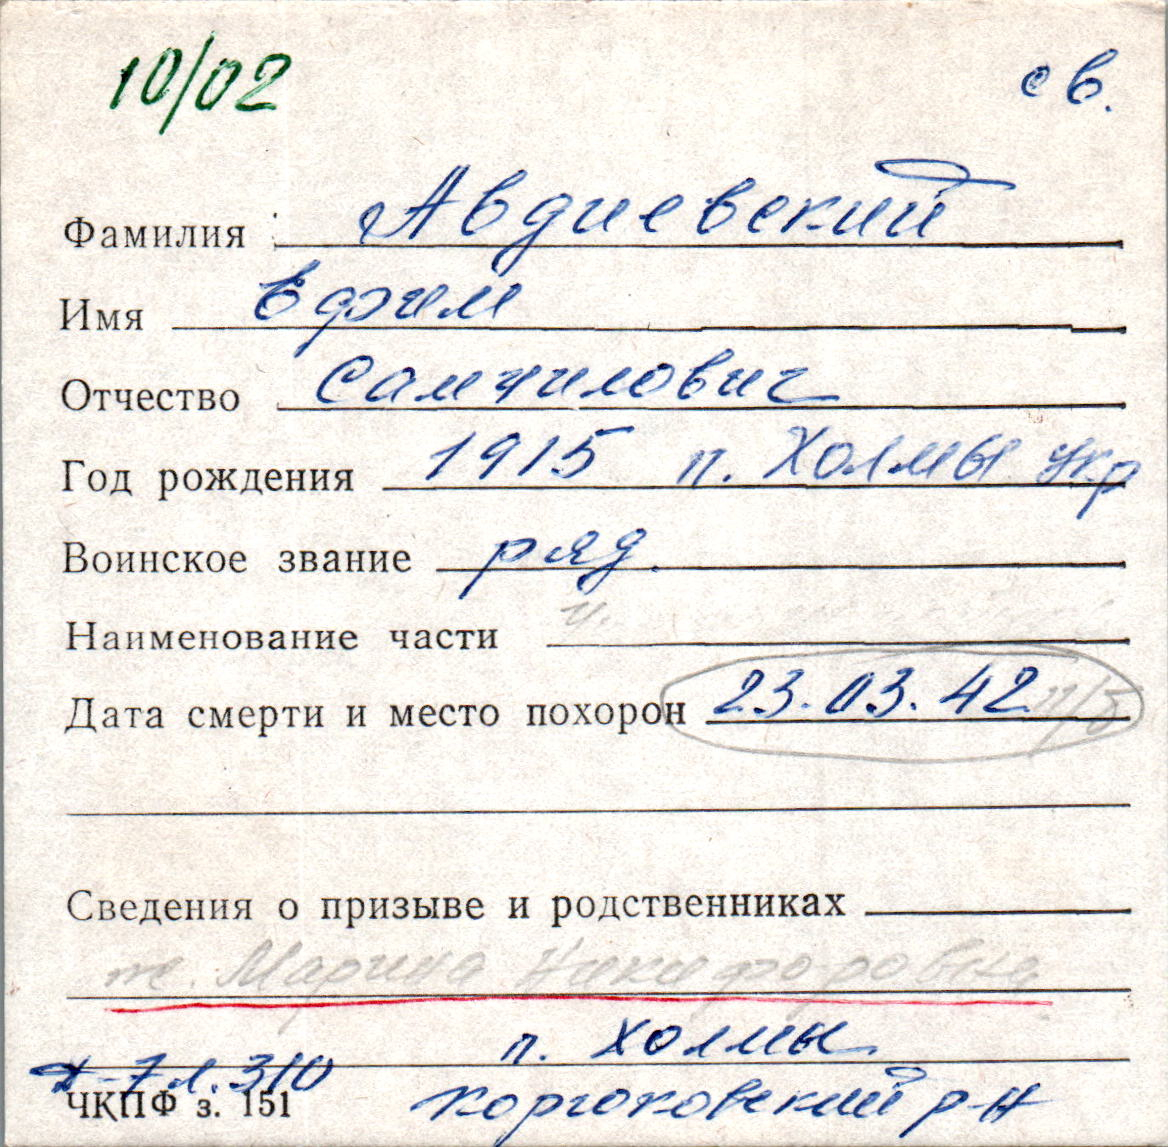 10/02 св.
Фамилия Авдиевский
Имя Ефим
Отчество Самуилович
Год рождения 1915 п. Холмы Укр
Воинское звание ряд.
Наименование части
Дата смерти и место похорон 23.03.42
Сведения о призыве и родственниках
ж. Марина Никифоровна
п. Холмы
д-7 л. 310
ЧКПФ з. 151 Корюковский р-н